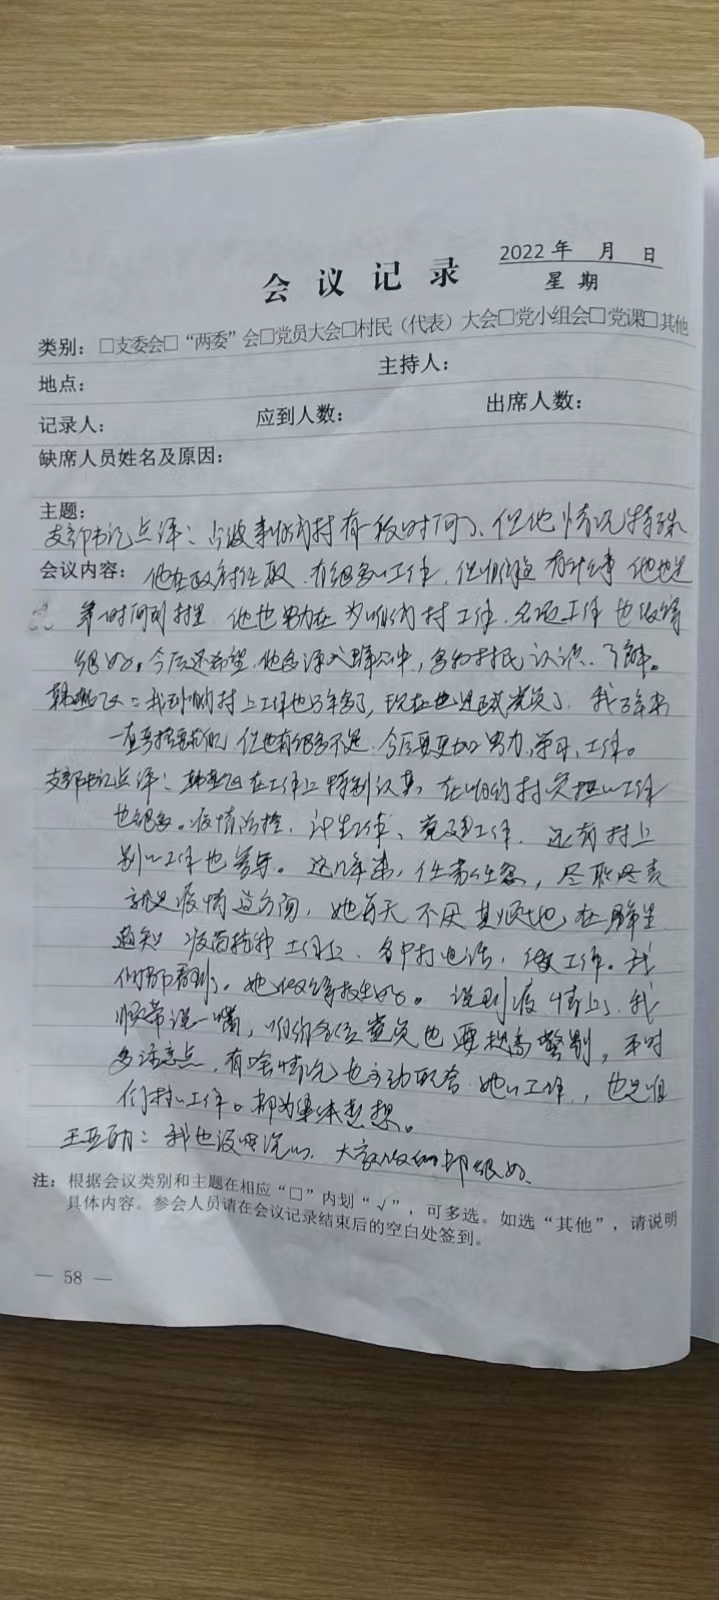 会议记录
2022年 月 日
星期
类别：□支委会□“两委”会□党员大会□村民（代表）大会□党小组会□党课□其他
地点： 主持人：
记录人： 应到人数： 出席人数：
缺席人员姓名及原因：
主题：
支部书记点评： 来咱们村有一段时间了、但他情况特殊
会议内容： 他在政府任职，有很多工作，但咱们这有什么事 他也是
第一时间到村里 他也努力在为咱们村工作，各项工作也做得
很好。今后还希望 他多深入群众中，多和村民认识、了解。
我到咱村上工作也 年多了，现在也是正式党员了 我 年来
一直 ，但也有很多不足，今后要更加努力，学习、工作。
支部书记点评： 在工作上特别认真，在咱们村负担的工作
也很多。疫情防控、计生工作、党建工作、还有村上
别的工作也参与。这几年来，任劳任怨，尽职尽责
就是疫情这方面，她每天不厌其烦地在群里
通知 疫苗接种工作上，多户打电话，做工作。我
们都看到。她做得挺好的。说到疫情上，我
顺带说一嘴，咱们各位党员也要提高警别，平时
多注意点，有啥情况也主动配合她的工作，也是咱
们村的工作。都为集体想想。
王亚 ：我也没啥说的，大家做的都很好、
注：根据会议类别和主题在相应“□”内划“√”，可多选。如选“其他”，请说明
具体内容。参会人员请在会议记录结束后的空白处签到。
— 58 —